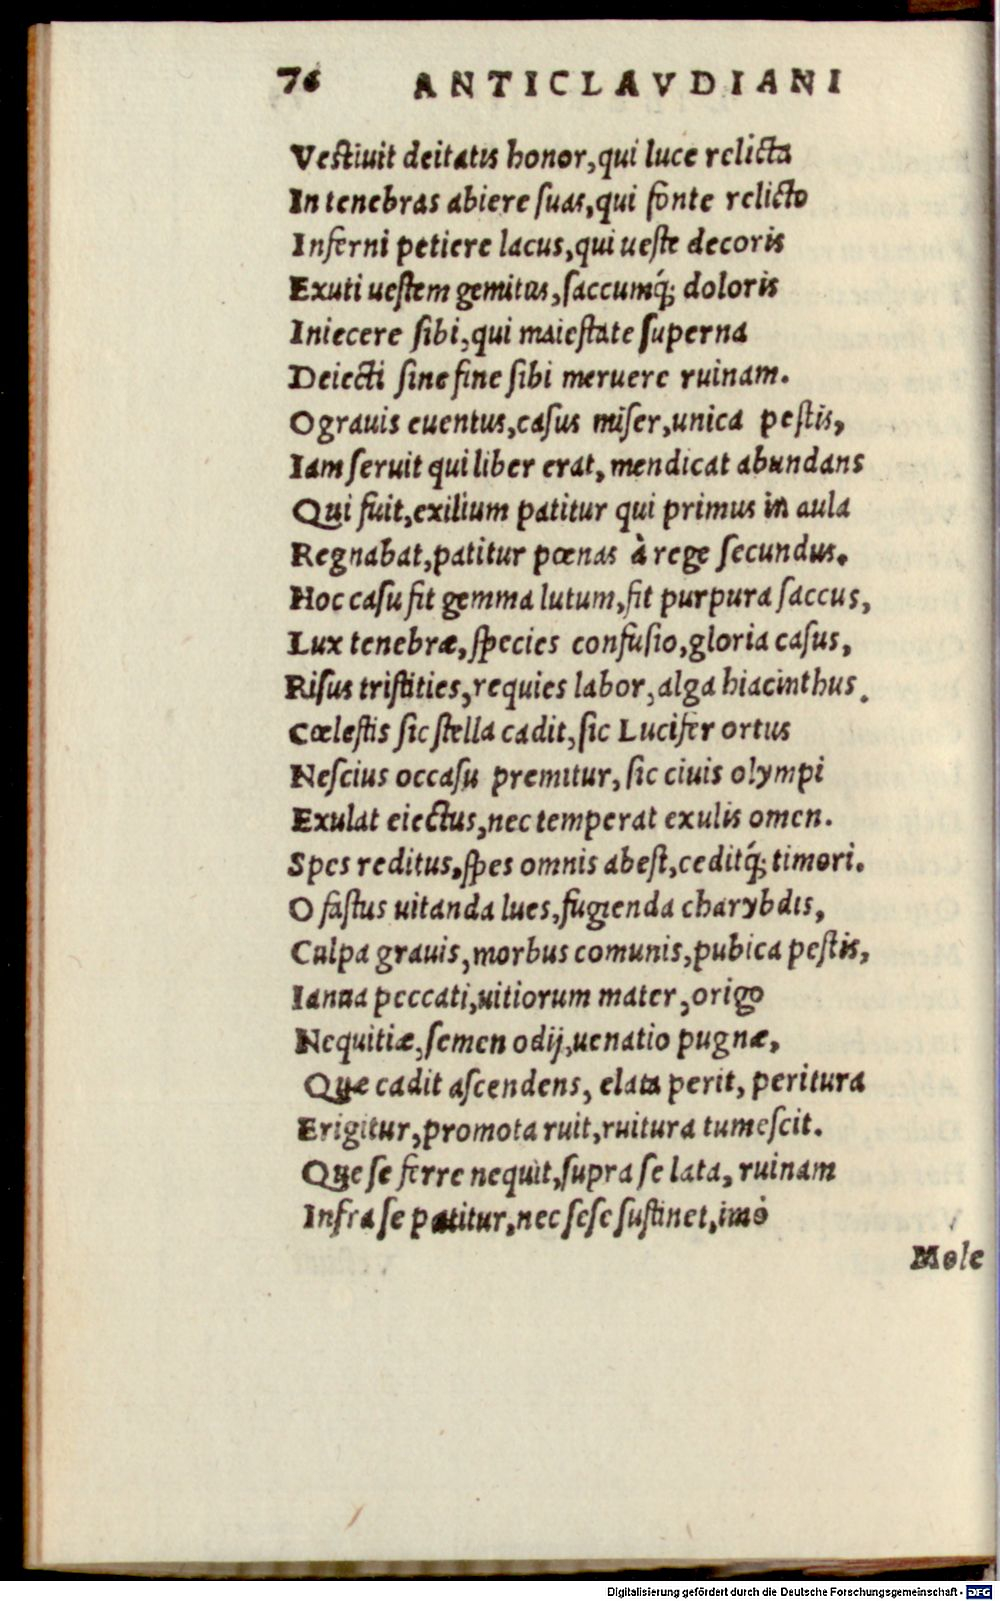 76 ANTICLAVDIANI
Veſtiuit deitatis honor, qui luce relicta
In tenebras abiere ſuas, qui fonte relicto
Inferni petiere lacus, qui ueſte decoris
Exuti ueſtem gemitus, ſaccumq́; doloris
Iniecere ſibi, qui maieſtate ſuperna
Deiecti ſine fine ſibi meruere ruinam.
O grauis euentus, caſus miſer, unica peſtis,
Iam ſeruit qui liber erat, mendicat abundans
Qui fuit, exilium patitur qui primus in aula
Regnabat, patitur pœnas à rege ſecundus.
Hoc caſu fit gemma lutum, fit purpura ſaccus,
Lux tenebræ, ſpecies confuſio, gloria caſus,
Riſus triſtities, requies labor, alga hiacinthus.
Cœleſtis ſic ſtella cadit, ſic Lucifer ortus
Neſcius occaſu premitur, ſic ciuis olympi
Exulat eiectus, nec temperat exulis omen.
Spes reditus, ſpes omnis abeſt, ceditq́; timori.
O faſtus uitanda lues, fugienda charybdis,
Culpa grauis, morbus comunis, pubica peſtis,
Ianua peccati, uitiorum mater, origo
Nequitiæ, ſemen odij, uenatio pugnæ,
Quæ cadit aſcendens, elata perit, peritura
Erigitur, promota ruit, ruitura tumeſcit.
Quæ ſe ferre nequit, ſupra ſe lata, ruinam
Infra ſe patitur, nec ſeſe ſuſtinet, imò
Mole
Digitalisierung gefördert durch die Deutsche Forschungsgemeinschaft - DFG